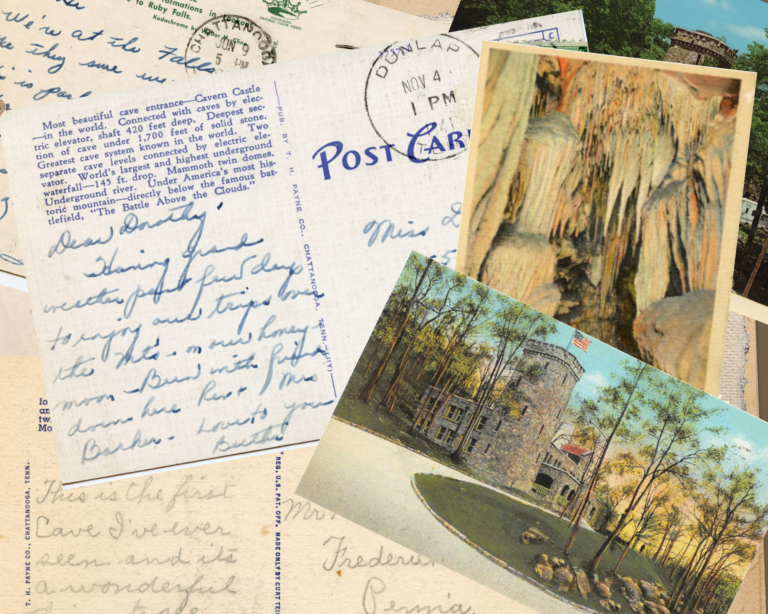 formations in
to Ruby Falls.
Kodachrome by
We're at the Falls
they sure we
is par
CHATTANOOGA
JUN 9
5 PM
Most beautiful cave entrance—Cavern Castle
—in the world. Connected with caves by elec-
tric elevator, shaft 420 feet deep. Deepest sec-
tion of cave under 1,700 feet of solid stone.
Greatest cave system known in the world. Two
separate cave levels connected by electric ele-
vator. World's largest and highest underground
waterfall—145 ft. drop. Mammoth twin domes
Underground river. Under America's most his-
toric mountain—directly below the famous bat-
tlefield, "The Battle Above the Clouds."
PUB. BY T. H. PAYNE CO., CHATTANOOGA, TENN.
DUNLAP
NOV 4
1 PM
POST CAR
Miss D
Dear Dorothy,
Having grand
weather past few days
to enjoy our trips over
the Mts - on our honey
moon - Been with friends
down here Rev & Mrs
Barker - Love to you
fo
an
tw
Mo
T. H. PAYNE CO., CHATTANOOGA, TENN.
This is the first
Cave I've ever
seen and its
a wonderful
REG. U.S. PAT. OFF. MADE ONLY BY CURT TEI
Mr
Frederic
Penna